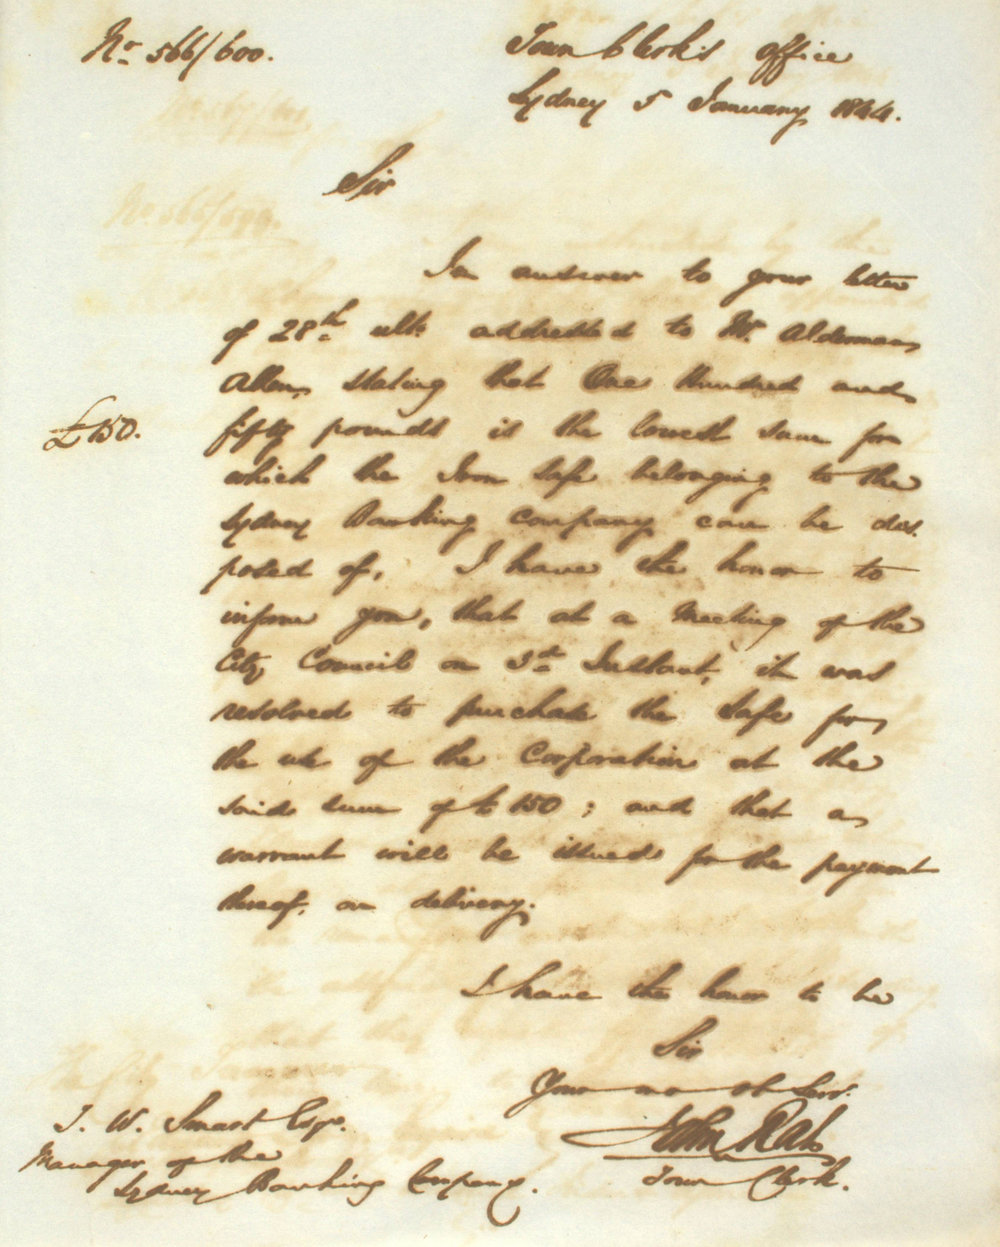 No. 566/600.
Town Clerk's office
Sydney 5 January 1844.
Sir
In answer to your letter
of 28th ulto. addressed to Mr. Alderman
Allen, stating that One Hundred and
£150.
fifty pounds is the lowest sum for
which the Iron Safe belonging to the
Sydney Banking Company can be dis-
posed of, I have the honor to
inform you, that at a Meeting of the
City Council on 3rd Instant, it was
resolved to purchase the Safe for
the use of the Corporation at the
said sum of £150; and that a
warrant will be issued for the payment
thereof, on delivery.
I have the honor to be
Sir
Your mo ob Serv.
John Rae
Town Clerk.
T. W. Smart Esqr.
Manager of the
Sydney Banking Company.